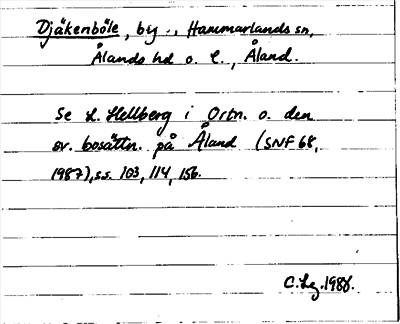 Djäkenböle, by., Hammarlands sn,
Ålands hd o. l., Åland.
Se L. Hellberg i Ortn. o. den
sv. bosättn. på Åland (SNF 68,
1987), ss. 103, 114, 156.
1988.